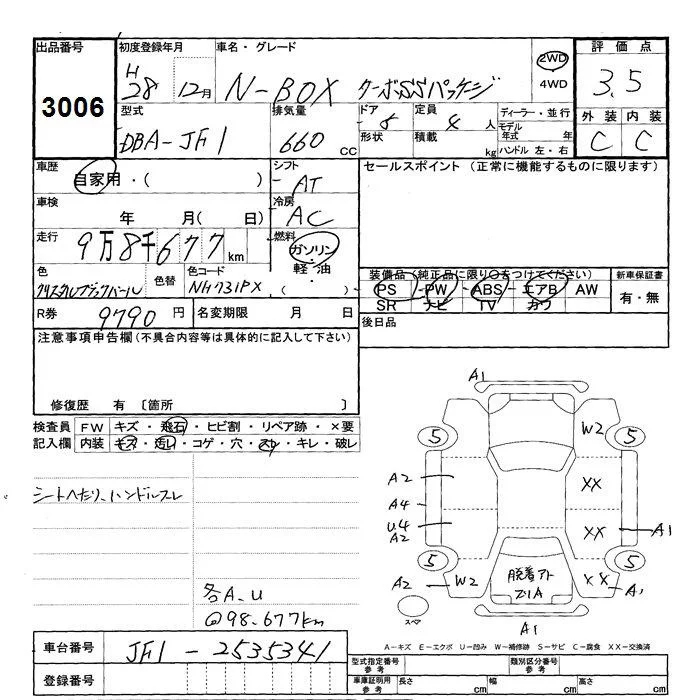 出品番号 初度登録年月 車名・グレード 評価点
3006 H28 12月 N-BOX ターボSSパッケージ 2WD 4WD 3.5
型式 排気量 ドア 定員 ディーラー・並行 外装 内装
DBA-JF1 660 CC 5 4 人 モデル年式 年 C C
形状 積載 kg ハンドル 左・右
車歴 シフト セールスポイント (正常に機能するものに限ります)
自家用・( ) AT
車検 冷房
年 月( 日) AC
走行 燃料
9万8千677km ガソリン・軽油・( )
色 色替 色コード 装備品(純正品に限り○をつけてください) 新車保証書
クリスタルブラックパール NH731PX PS PW ABS エアB AW 有・無
SR ナビ TV カワ
R券 9790 円 名変期限 月 日 後日品
注意事項申告欄(不具合内容等は具体的に記入して下さい)
修復歴 有 〔箇所 〕
検査員 FW キズ・飛石・ヒビ割・リペア跡・×要
記入欄 内装 キズ・汚れ・コゲ・穴・スレ・キレ・破レ
シートへたり、ハンドルスレ
各A.U
@98.677km
A1
5 W2 5
A2 XX
A4
U4 XX A1
A2
5 5
A2 W2 脱着アト XX A1
スペア A1
A-キズ E-エクボ U-凹み W-補修跡 S-サビ C-腐食 XX-交換済
車台番号 JF1-2535341 型式指定番号 参考 類別区分番号 参考
登録番号 車庫証明用 参考 長さ cm 幅 cm 高さ cm